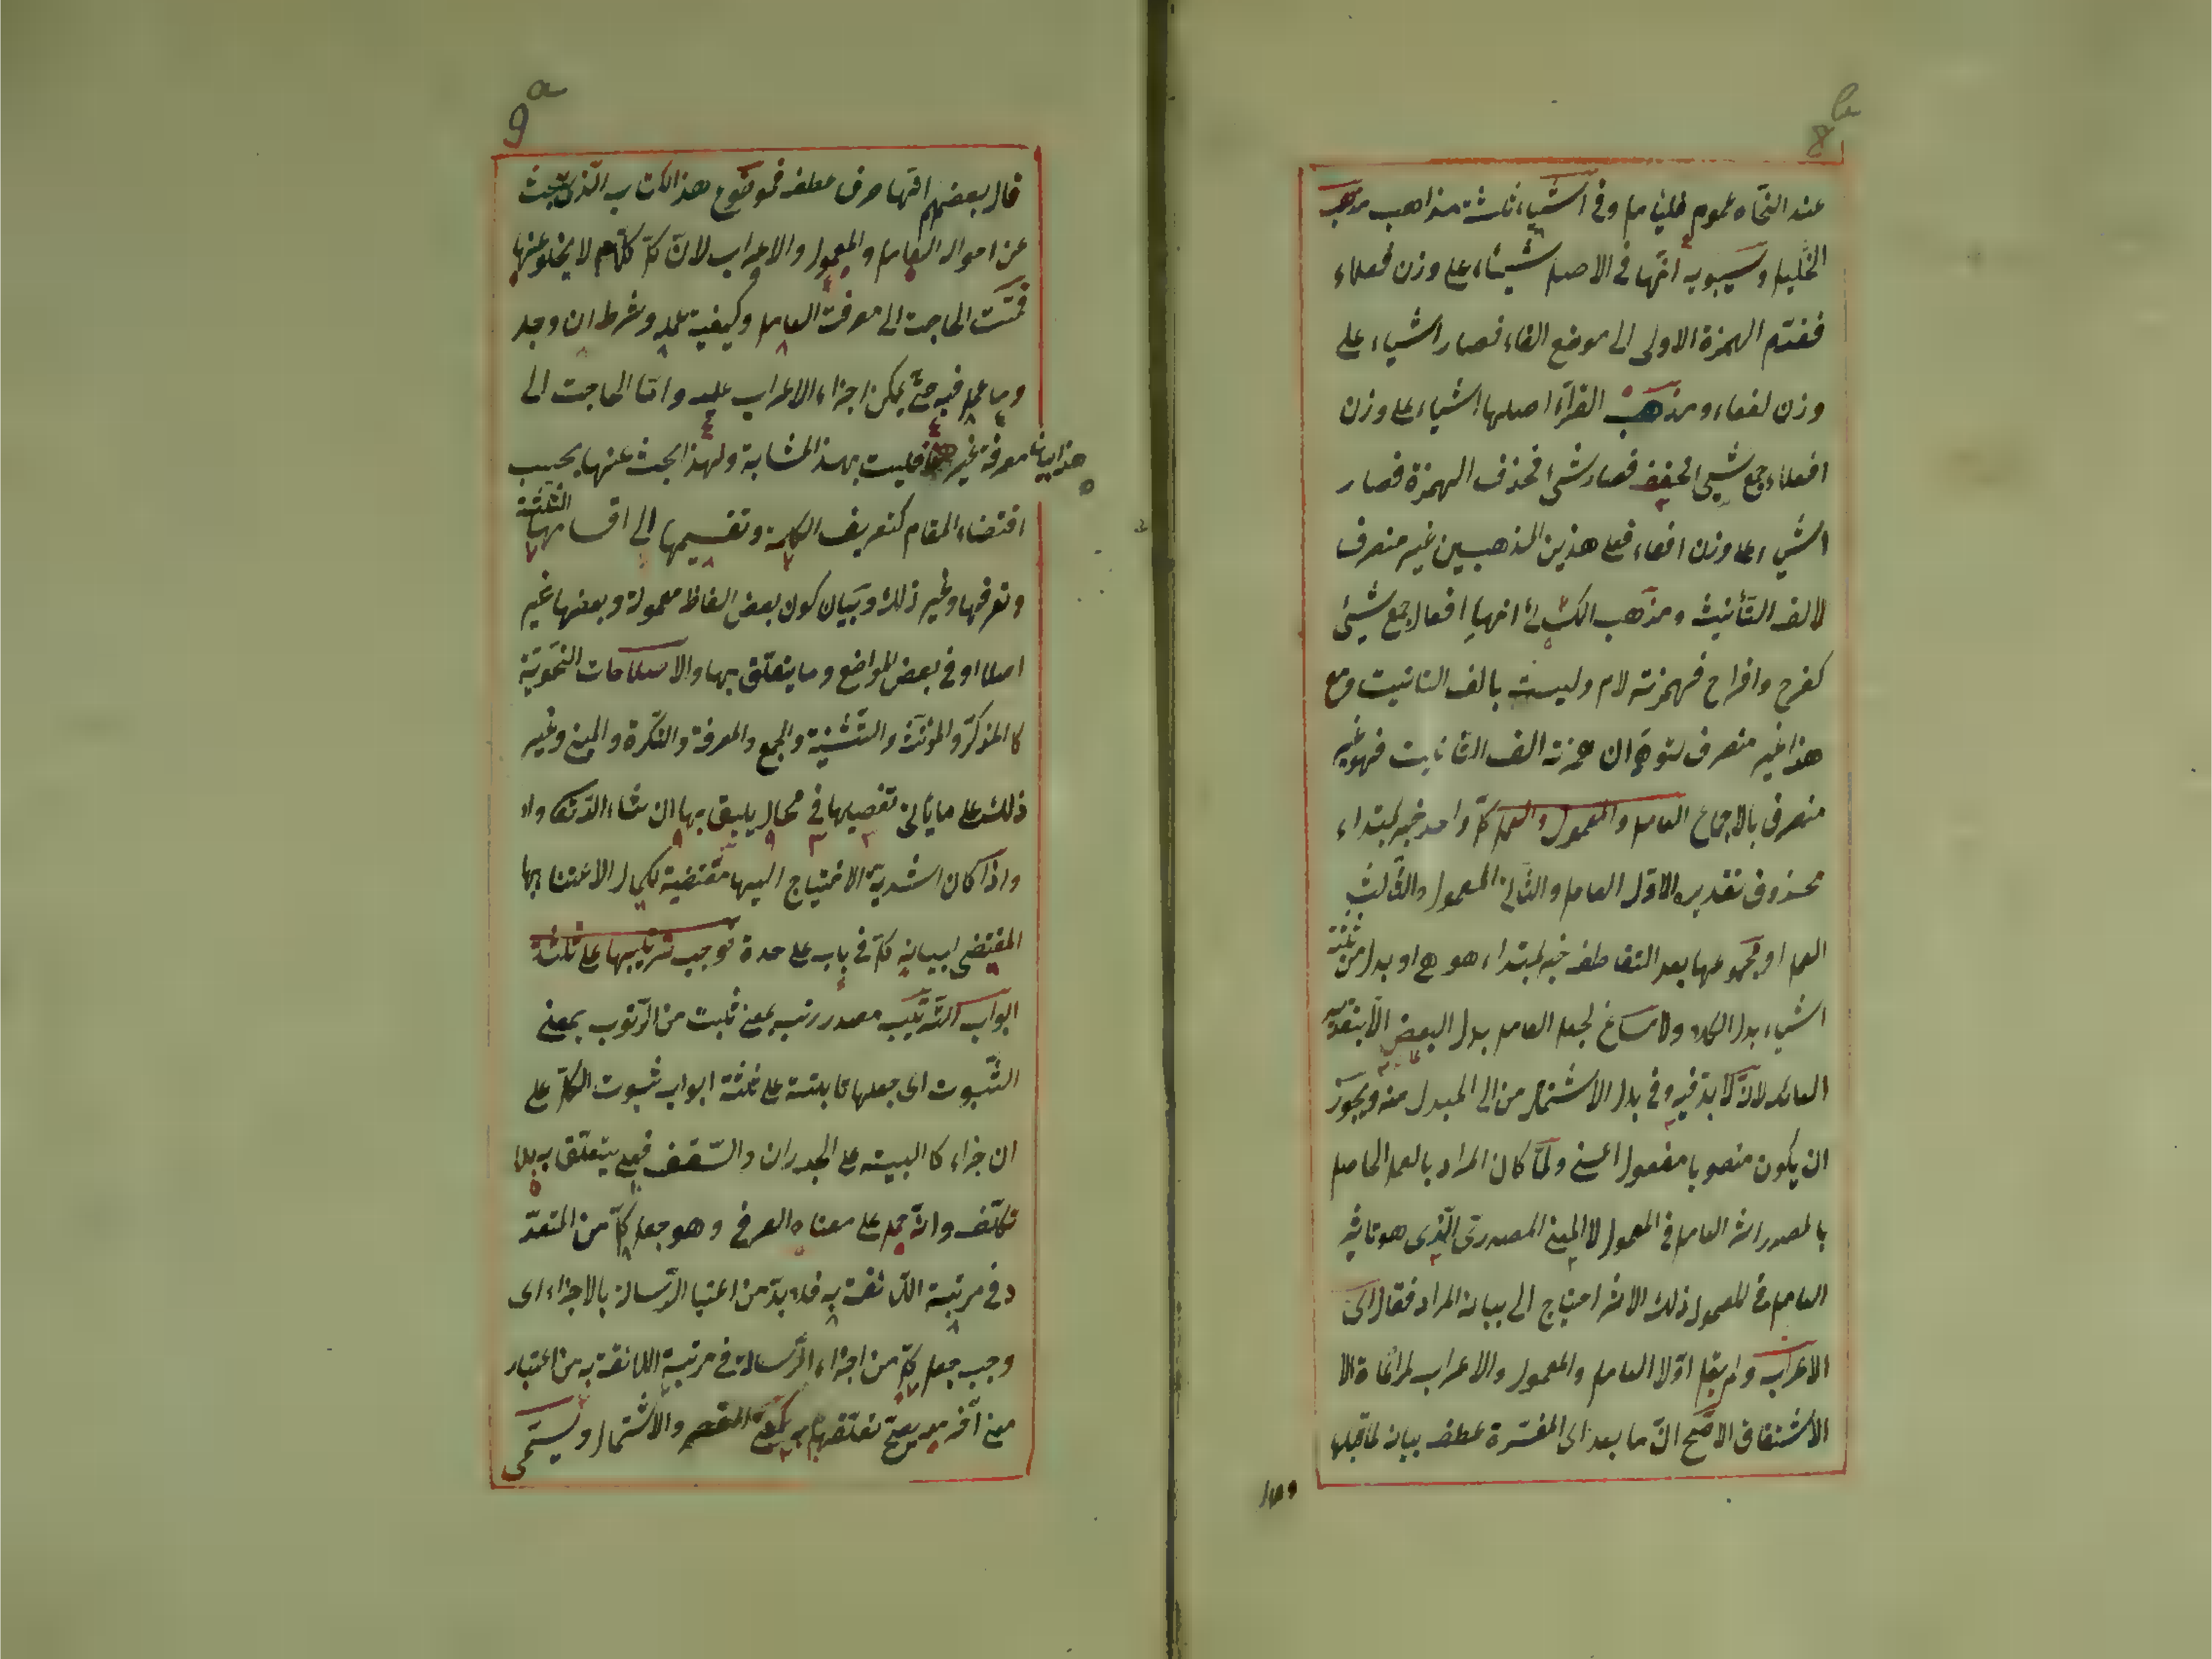 8b
عند النحاه عموم فليتأمل وفى اشياء ثلثة مذاهب مذهب
الخليل وسيبويه انها فى الاصل شيئاء على وزن فعلاء
فقدم الهمزة الاولى الى موضع الفاء فصار اشياء على
وزن لفعاء ومذهب الفرآء اصلها اشياء على وزن
افعلاء جمع شيئ فصار شئ فحذف الهمزة فصار
اشياء على وزن افعاء فعلى هذين المذهبين غير منصرف
لالف التأنيث ومذهب الكسائى انها افعال جمع شيئ
كفرح وافراح فهمزته لام وليست بالف التانيت ومع
هذا غير منصرف لتوهم ان همزته الف التانيت فهو غير
منصرف بالاجماع العامل والمعمول والعمل كل واحد خبر لمبتداء
محذوف تقديره الاول العامل والثانى المعمول والثالث
العمل او مجموعها بعد التعاطف خبر لمبتداء هو هى او بدل من ثلثة
اشياء بدل الكل ولا مساغ لجعل العامل بدل البعض الا بتقدير
العائد لانه لا بد فيه وفى بدل الاشتمال من الى المبدل منه ويجوز
ان يكون منصوبا مفعول اعنى ولما كان المراد بالعمل الحاصل
بالمصدر اثر العامل فى المعمول لا المعنى المصدرى الذى هو تاثير
العامل فى المعمول ذلك الاثر احتياج الى بيان المراد فقال اى
الاعراب ولم يقل اولا العامل والمعمول والاعراب لمراعاة الا
الاشتقاق الاصح ان ما بعد اى المفسرة عطف بيان لما قبلها
وقال
9a
قال بعضهم انها حرف عطف فموضوع هذا الكتاب الذى يبحث
عن احوال العامل والمعمول والاعراب لان كل كلام لا يخلو عنها
فمست الحاجت الى معرفت العامل وكيفية عمله وشرط ان وجد
وما عمل فيه حتى يمكن اجزاء الاعراب عليه واما الحاجت الى
معرفة غير هذا فليست بهذ المشابة ولهذا البحث عنها بحسب
هذا بيانا
اقتضاء المقام كتعريف الكلمة وتقسيمها الى اقسامها الثلثة
وتعرفها وغير ذلك وبيان كون بعض الفاظ معمولة وبعضها غير
اصلا او فى بعض المواضع وما يتعلق بها والاصطلاحات النحوية
كا المذكر والمؤنث والتثنية والجمع والمعرفة والنكرة والمبنى وغير
ذلك على ما يأتى تفصيلها فى محال يليق بها ان شاء الله تعالى واذ
واذا كان اشدية الاحتياج اليها مقتضية لكمال الاعتنا بها
المقتضى لبيانه كل فى باب على حدة فوجب ترتيبها على ثلثة
ابواب الترتيب مصدر رتب بمعنى ثبت من الرتوب بمعنى
الثبوت اى جعلها ثابتة على ثلثة ابواب ثبوت الكل على
ان جزاء كا البيت على الجدران والسقف فعلى يتعلق به بلا
تكلف وانه حمل على معناه العرفى وهو جعل كل من المتعد
د فى مرتبة اللائقة به فلا بد من اعتبا الرسالة بالاجزاء اى
وجب جعل كل من اجزاء الرسالة فى مرتبة اللائقة به من اعتبار
معنى آخر تعلقها به والاشتمال ويسمى